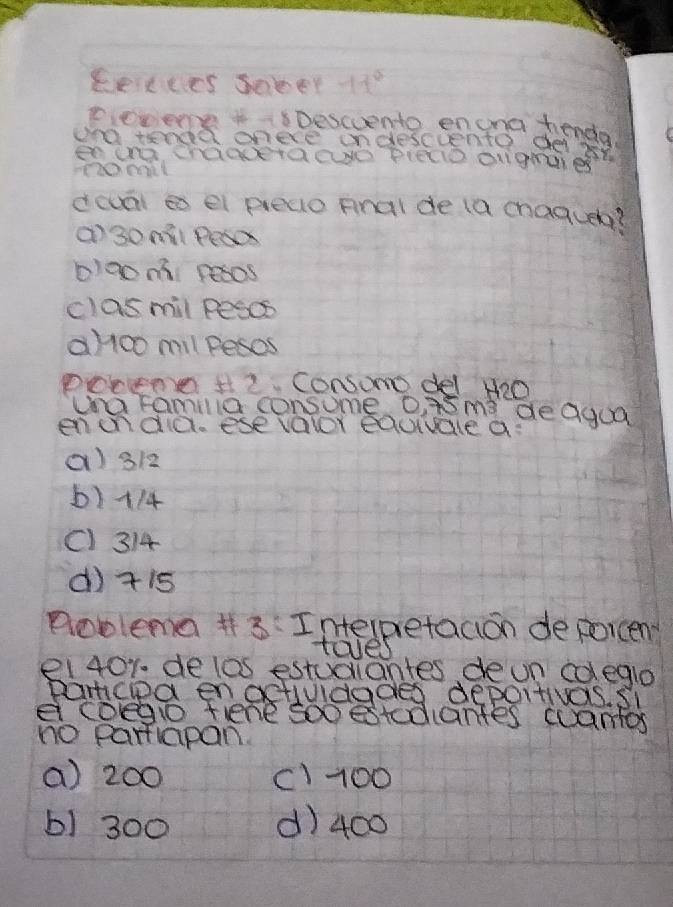 Ejercicios Saber 11°
Problema #1: Descuento en una tienda
una tenda ofrece un descuento del 25%
en una chaqueta cuyo precio original es
120 mil
¿cuál es el precio final de la chaqueta?
a) 30 mil Pesos
b) 90 mil pesos
c) 95 mil pesos
d) 100 mil pesos
Problema #2. Consumo del H2O
una familia consume 0,75 m3 de agua
en un dia. ese valor equivale a:
a) 3/2
b) 1/4
c) 3/4
d) 7/5
Problema #3: Interpretación de porcen
tajes
el 40% de los estudiantes de un colegio
participa en actividades deportivas. si
el colegio tiene 500 estudiantes cuantos
no participan.
a) 200 c) 100
b) 300 d) 400